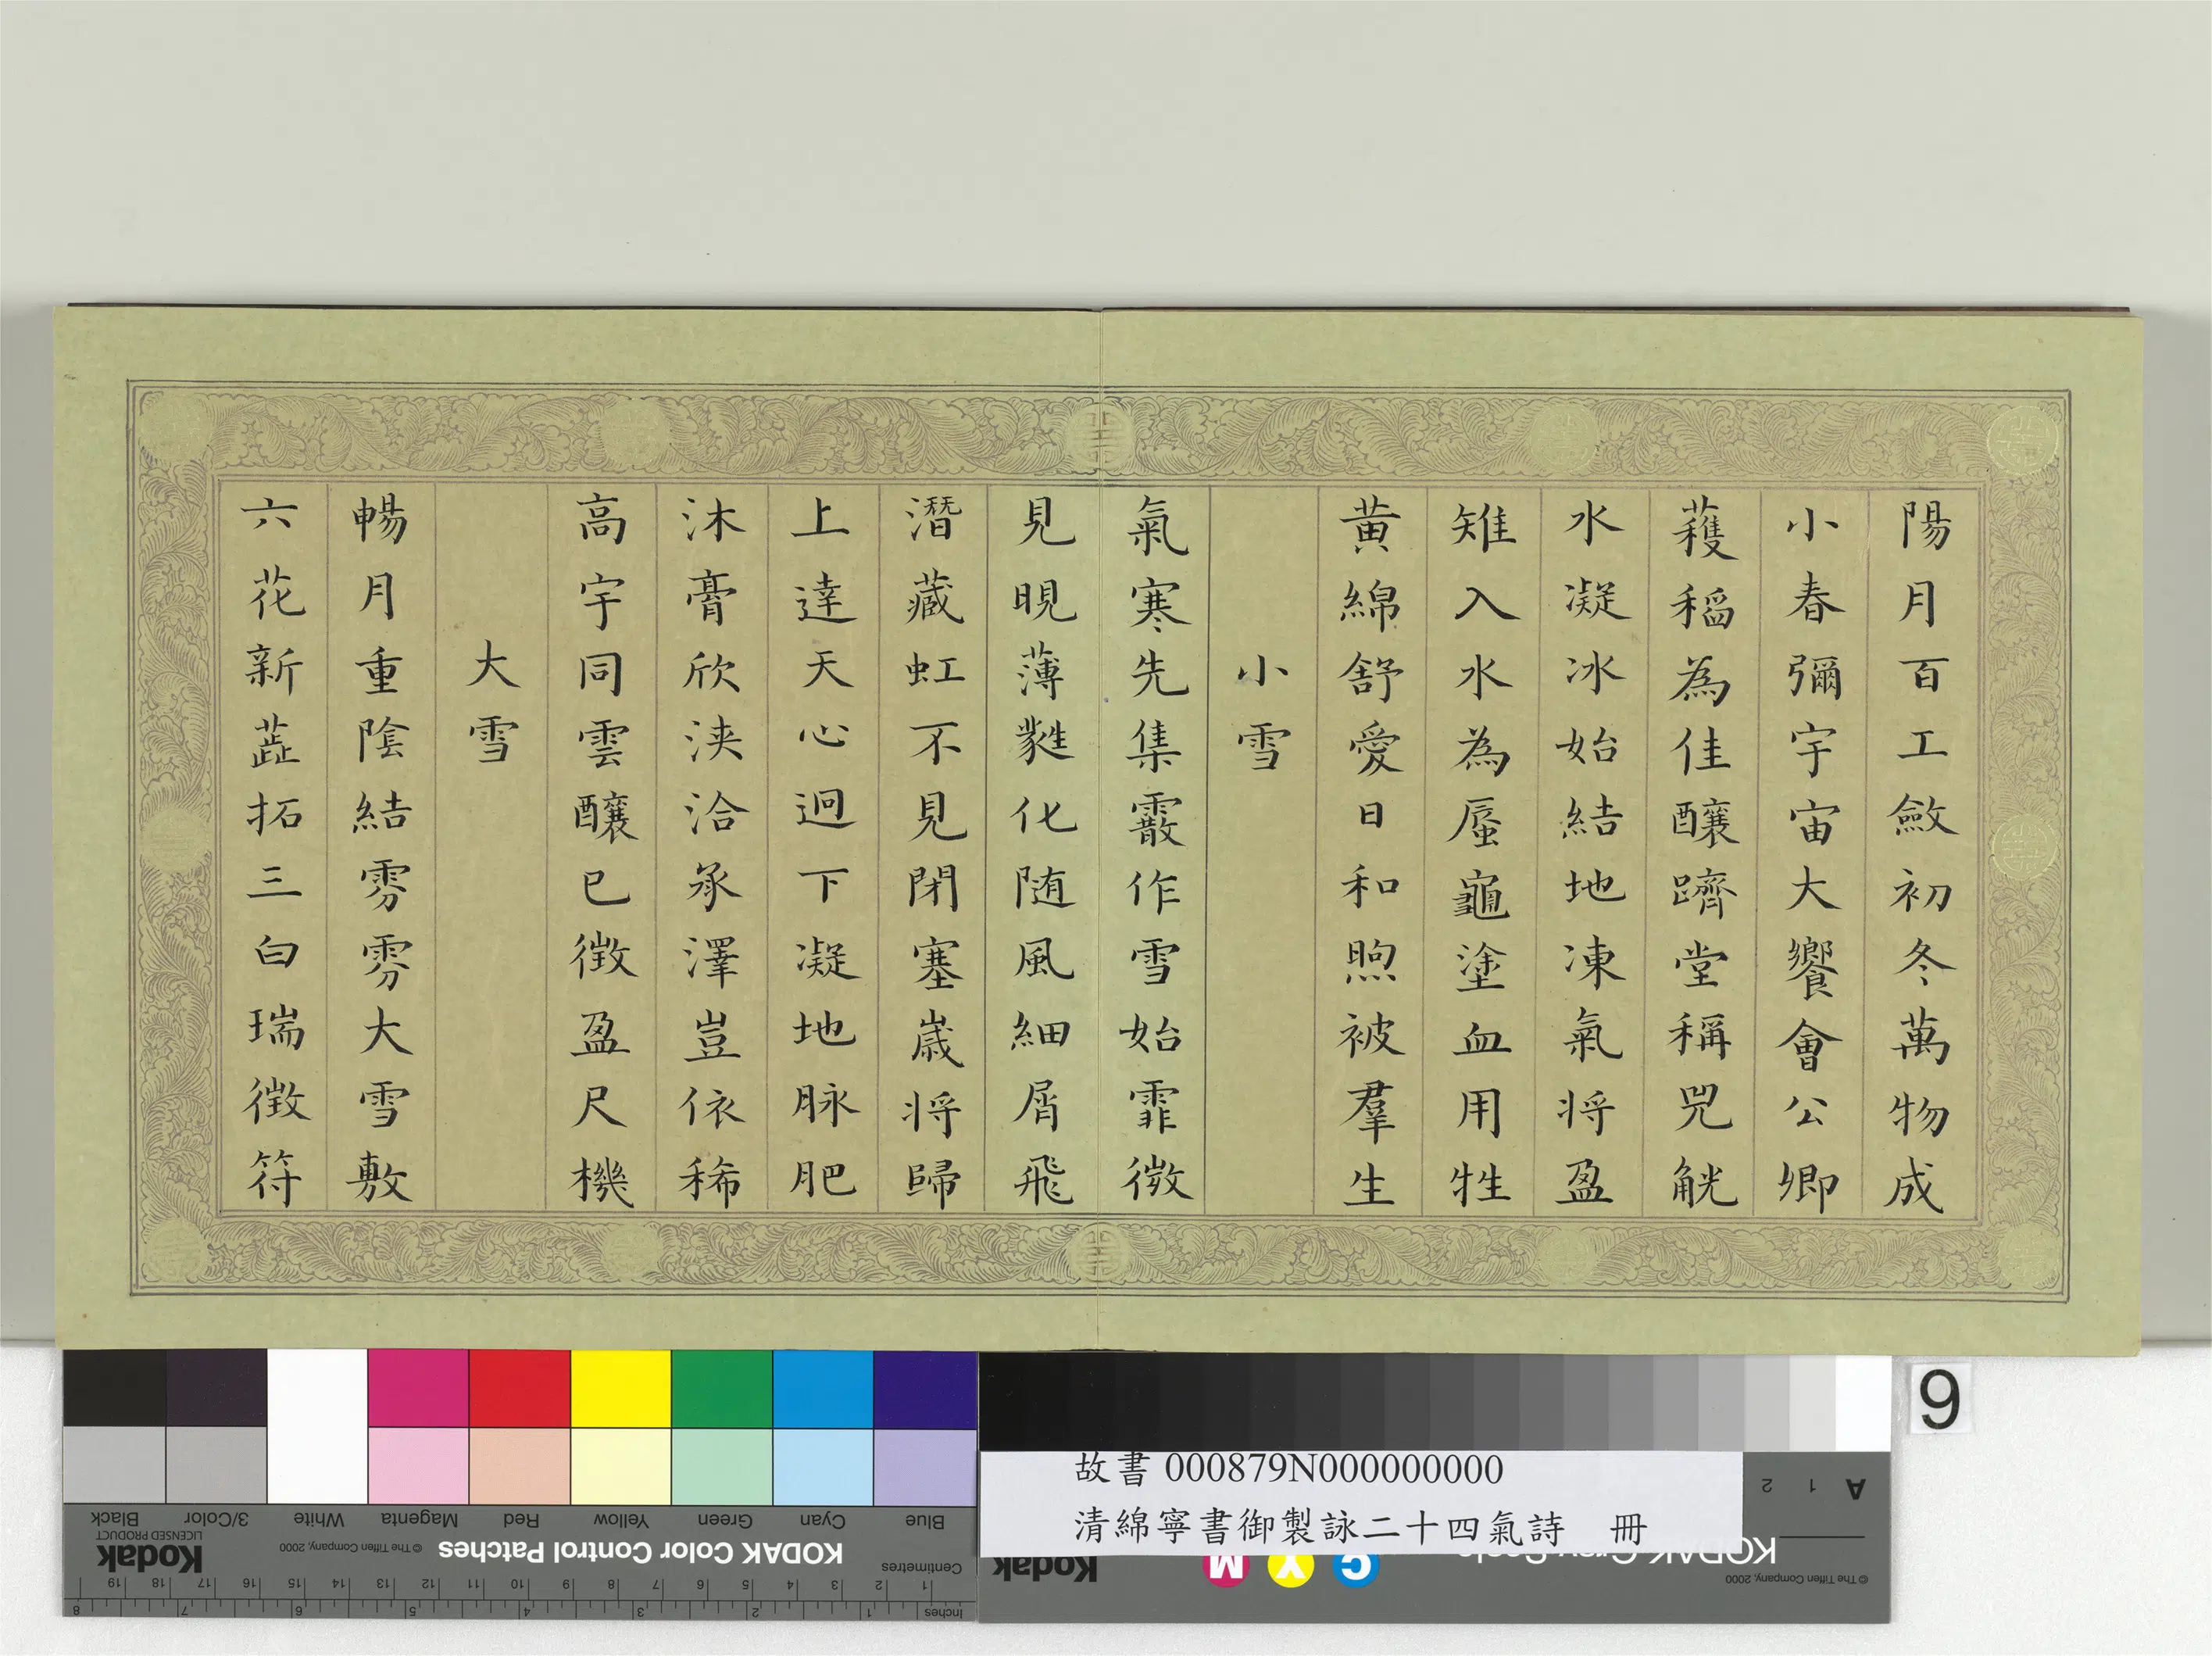 陽月百工斂初冬萬物成
小春彌宇宙大饗會公卿
穫稻為佳釀躋堂稱兕觥
水凝冰始結地凍氣將盈
雉入水為蜃龜塗血用牲
黄綿舒愛日和煦被羣生
小雪
氣寒先集霰作雪始霏微
見晛薄蕤化随風細屑飛
潛藏虹不見閉塞嵗將歸
上達天心迥下凝地脉肥
沐膏欣浹洽承澤豈依稀
高宇同雲釀已徴盈尺機
大雪
暢月重陰結雰雰大雪敷
六花新蕋拓三白瑞徴符
9
故書 000879N000000000
清綿寧書御製詠二十四氣詩 冊
A 1 2
KODAK Gray Scale
© The Tiffen Company, 2000
Kodak
C Y M
Blue Cyan Green Yellow Red Magenta White 3/Color Black
KODAK Color Control Patches © The Tiffen Company, 2000 Kodak
LICENSED PRODUCT
Centimetres
1 2 3 4 5 6 7 8 9 10 11 12 13 14 15 16 17 18 19
Inches 1 2 3 4 5 6 7 8